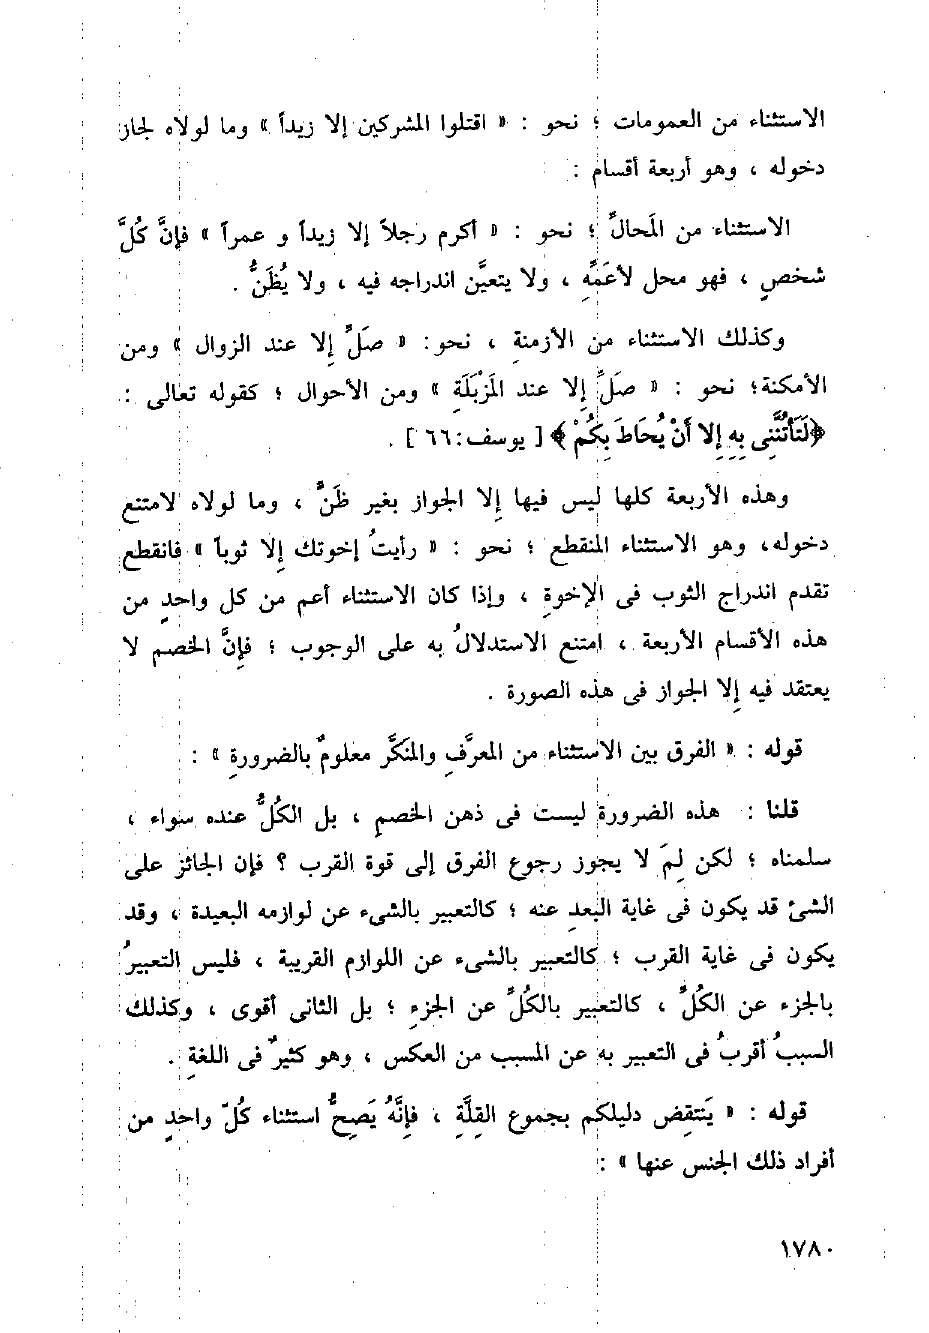 الاستثناء من العمومات ؛ نحو : « اقتلوا المشركين إلا زيداً » وما لولاه لجاز
دخوله ، وهو أربعة أقسام :
الاستثناء من المَحالِّ ؛ نحو : « أكرم رجلاً إلا زيداً و عمراً » فإنَّ كُلَّ
شخصٍ ، فهو محل لأعَمِّهِ ، ولا يتعيَّن اندراجه فيه ، ولا يُظَنُّ .
وكذلك الاستثناء من الأزمنةِ ، نحو: « صَلِّ إلا عند الزوال » ومن
الأمكنة؛ نحو : « صَلِّ إلا عند المَزْبَلَةِ » ومن الأحوال ؛ كقوله تعالى :
﴿لَتَأْتُنَّنِى بِهِ إِلا أَنْ يُحَاطَ بِكُمْ ﴾ [ يوسف:٦٦ ] .
وهذه الأربعة كلها ليس فيها إلا الجواز بغير ظَنٍّ ، وما لولاه لامتنع
دخوله، وهو الاستثناء المنقطع ؛ نحو : « رأيتُ إخوتك إلا ثوباً » فانقطع
تقدم اندراج الثوب فى الإخوةِ ، وإذا كان الاستثناء أعم من كل واحدٍ من
هذه الأقسام الأربعة ، امتنع الاستدلالُ به على الوجوب ؛ فإنَّ الخصم لا
يعتقد فيه إلا الجواز فى هذه الصورة .
قوله : « الفرق بين الاستثناء من المعرَّفِ والمنَكَّر معلومٌ بالضرورةِ » :
قلنا : هذه الضرورة ليست فى ذهن الخصمِ ، بل الكُلُّ عنده سواء ،
سلمناه ؛ لكن لِمَ لا يجوز رجوع الفرق إلى قوة القرب ؟ فإن الجائز على
الشئ قد يكون فى غاية البعدِ عنه ؛ كالتعبير بالشىء عن لوازمه البعيدة ، وقد
يكون فى غاية القرب ؛ كالتعبير بالشىء عن اللوازم القريبة ، فليس التعبيرُ
بالجزء عن الكُلِّ ، كالتعبير بالكُلِّ عن الجزءِ ؛ بل الثانى أقوى ، وكذلك
السببُ أقربُ فى التعبير به عن المسبب من العكس ، وهو كثيرٌ فى اللغةِ .
قوله : « يَنتقِض دليلكم بجموع القِلَّة ، فإنَّهُ يَصِحُّ استثناء كُلّ واحدٍ من
أفراد ذلك الجنس عنها » :
١٧٨٠